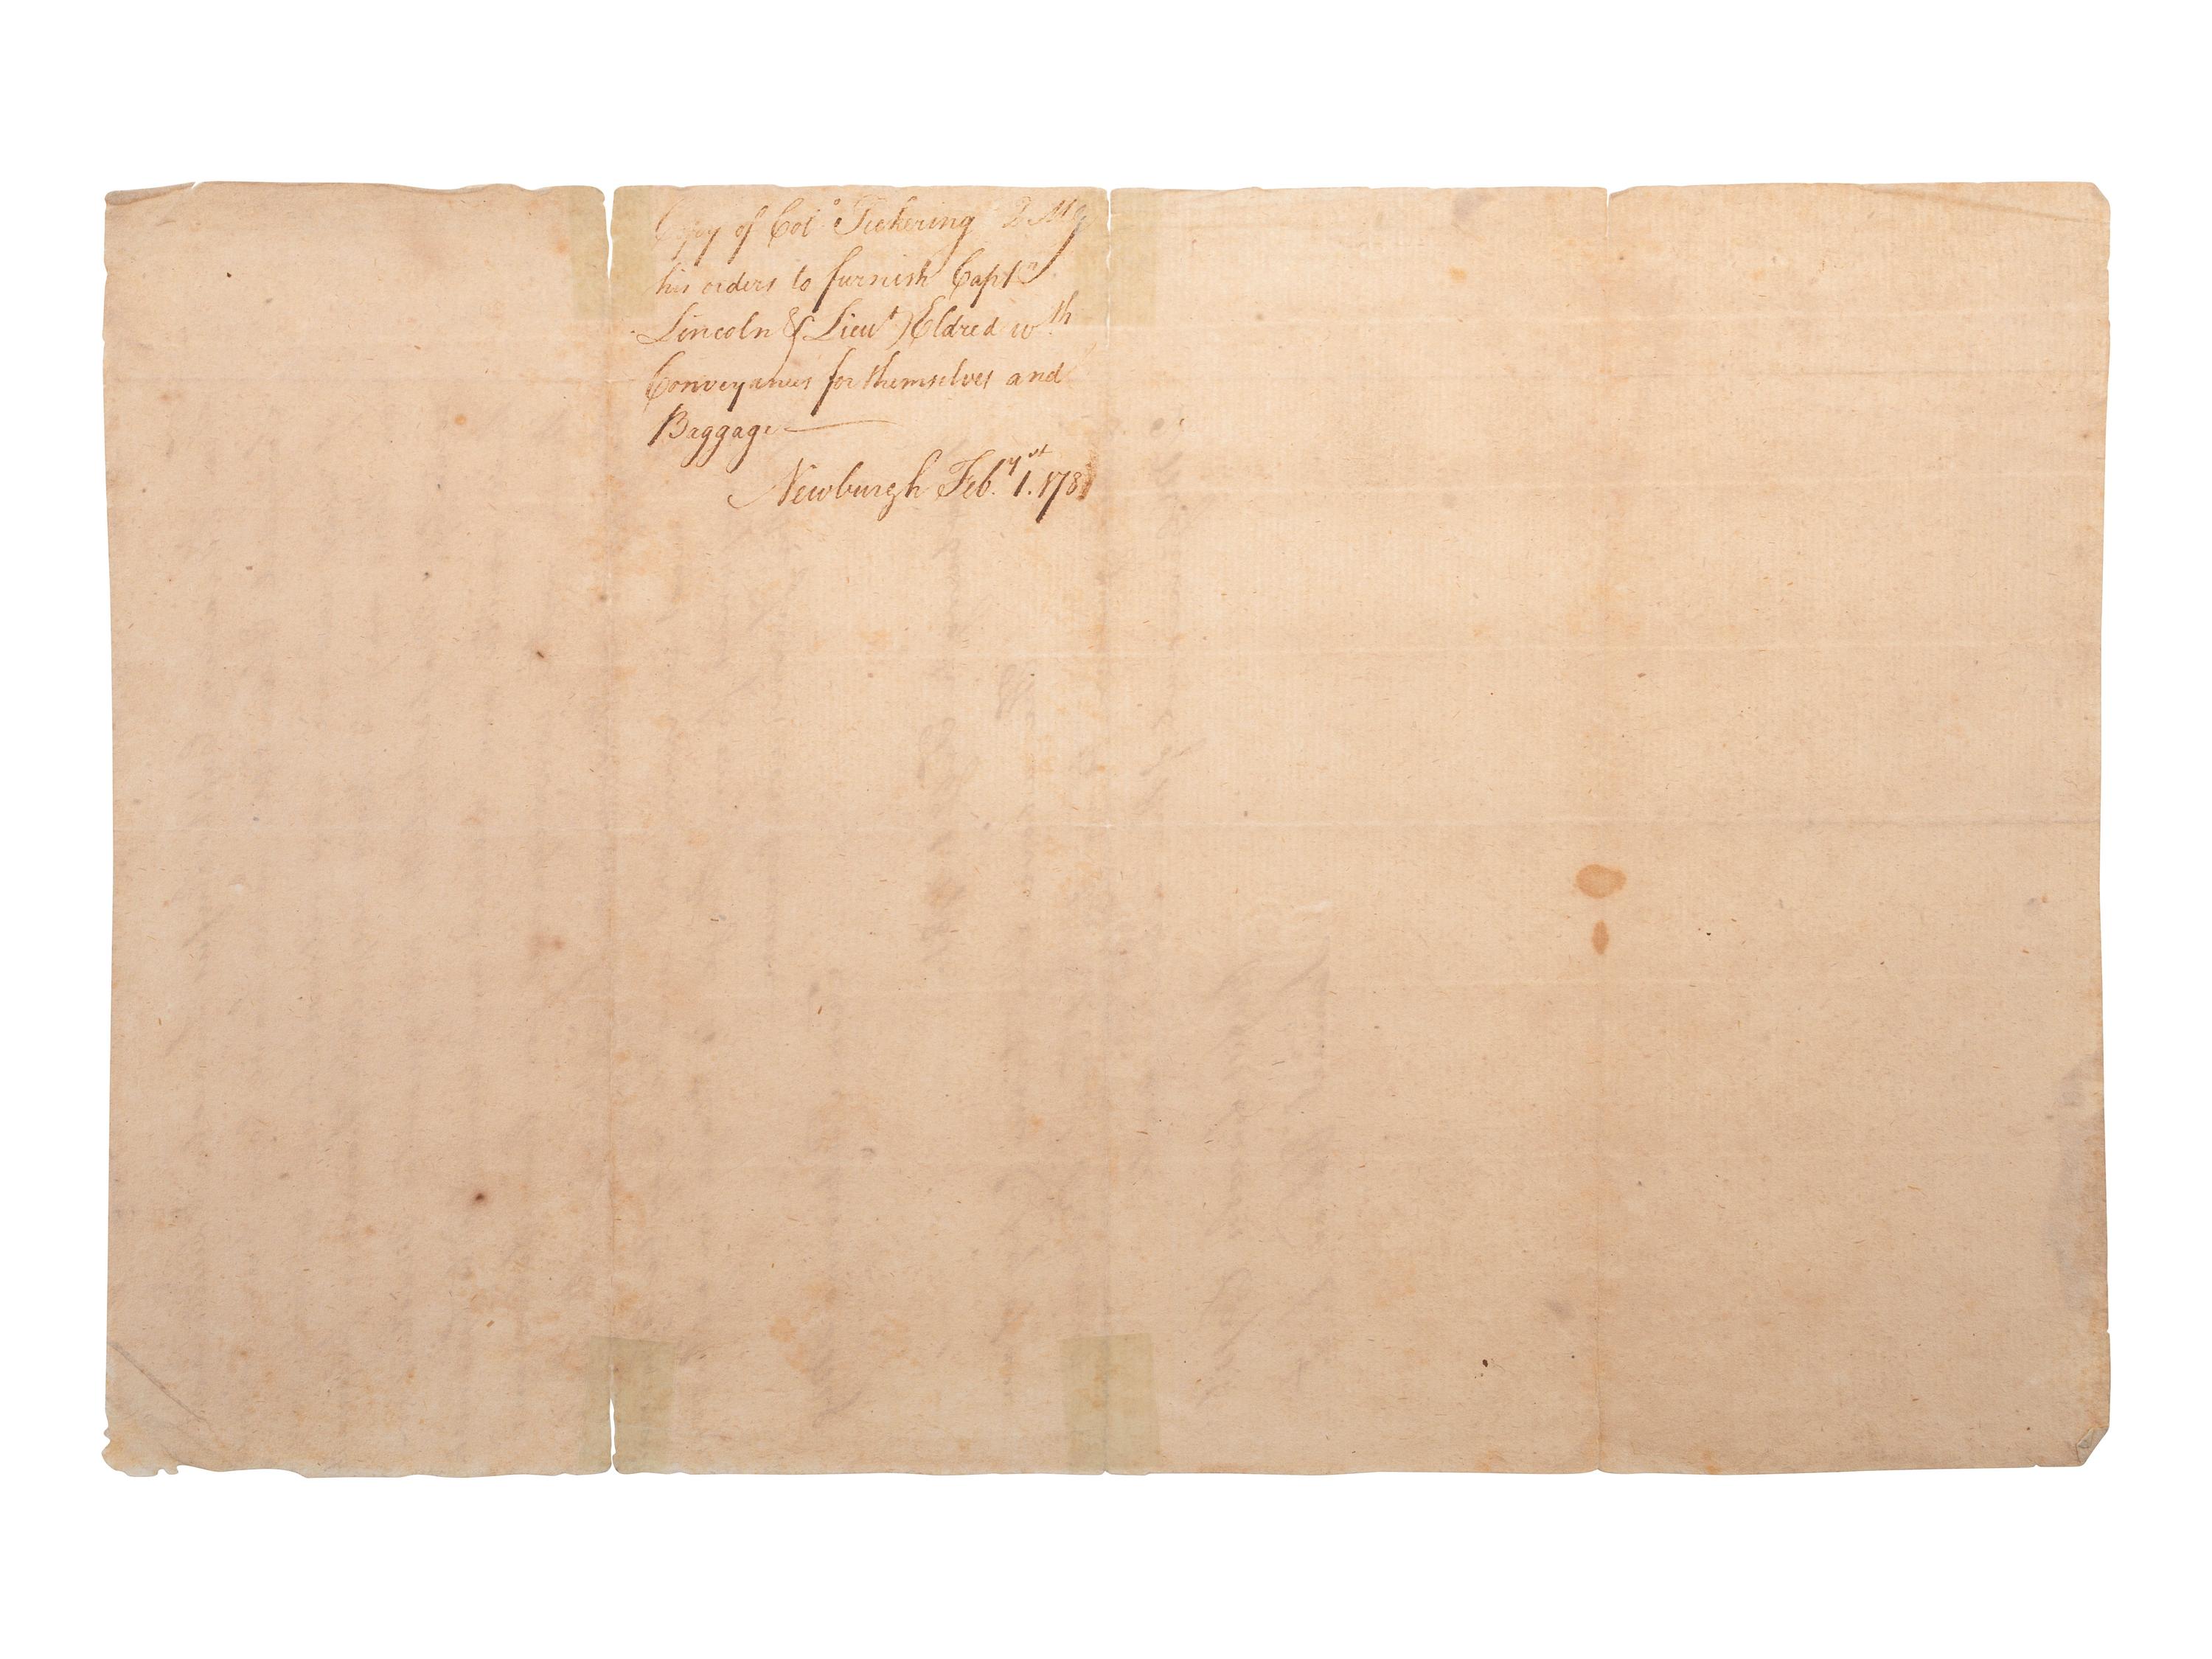 Copy of Colo Pickering Q M G
his orders to furnish Captn
Lincoln & Lieut Eldred wth
Conveyances for themselves and
Baggage
Newburgh Feby 1st. 178